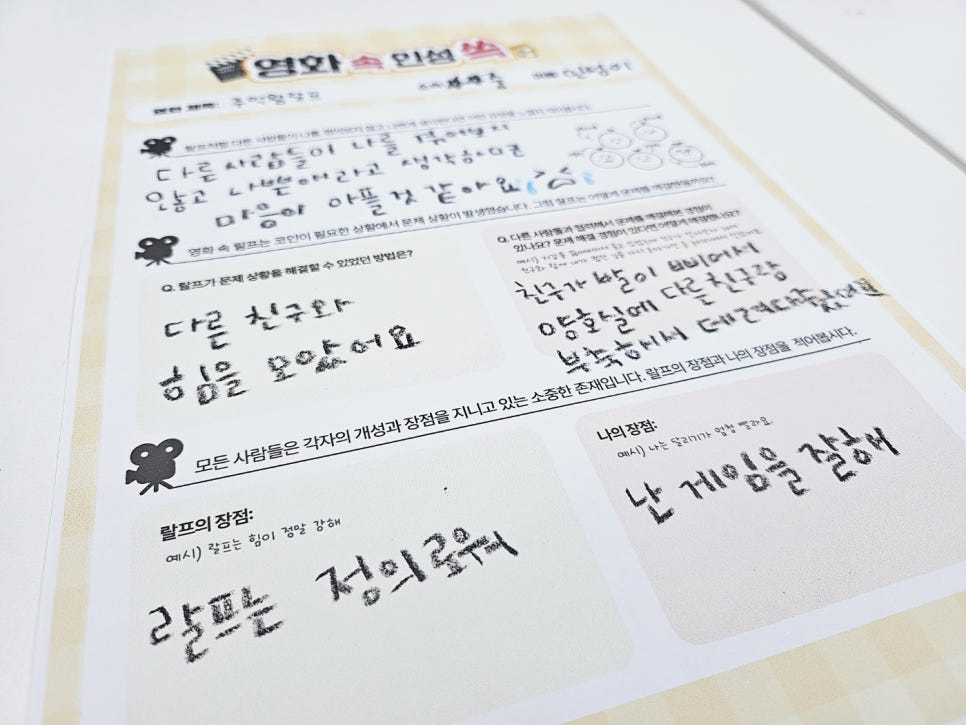 영화 속 인성 쏙
영화 제목: 주먹왕랄프
다른 사람들이 나를 끼워주지
않고 나쁜애라고 생각하시면
마음이 아플것 같아요
영화 속 랄프는 코인이 필요한 상황에서 문제 상황이 발생했습니다. 그럼 랄프는 어떻게 문제를 해결했을까요?
Q. 랄프가 문제 상황을 해결할 수 있었던 방법은?
다른 친구와
힘을 모았어요
Q. 다른 사람들과 협력해서 문제를 해결해본 경험이
있나요? 문제 해결 경험이 있다면 어떻게 해결했나요?
친구가 발이 삐어서
양호실에 다른친구랑
부축해서 데려다줬어요
모든 사람들은 각자의 개성과 장점을 지니고 있는 소중한 존재입니다. 랄프의 장점과 나의 장점을 적어봅시다.
랄프의 장점:
예시) 랄프는 힘이 정말 강해
랄프는 정의로워
나의 장점:
예시) 나는 달리기가 엄청 빨라요.
난 게임을 잘해